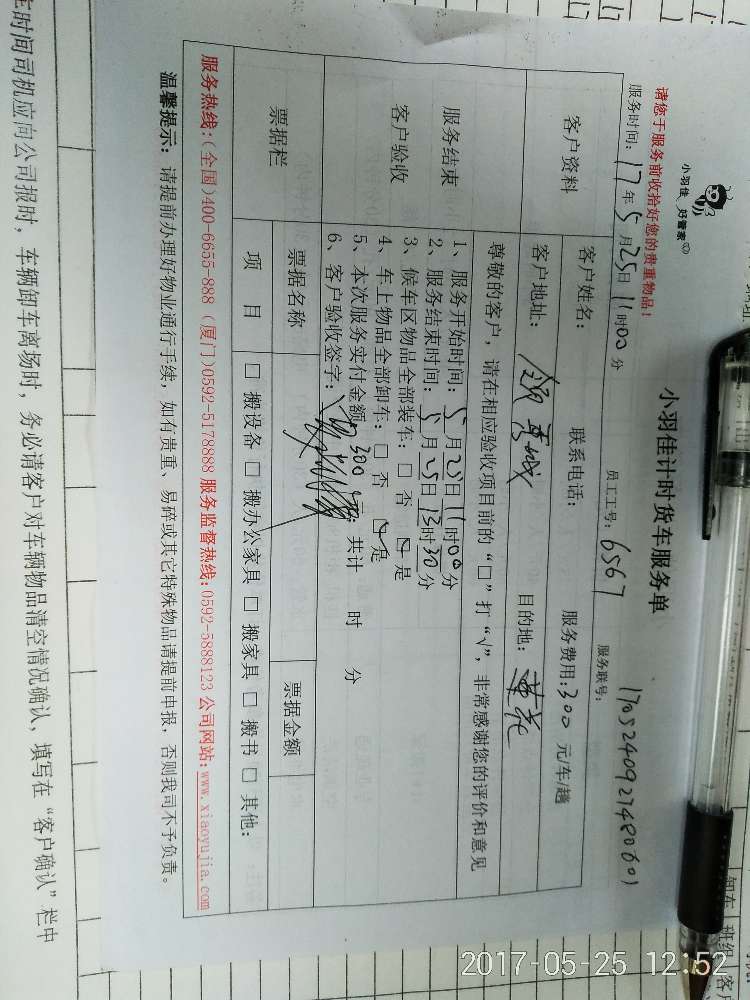 小羽佳 好管家
小羽佳计时货车服务单
1705240927480601
请您于服务前收拾好您的贵重物品!
服务时间: 17 年 5 月 25 日 11 时 00 分 员工工号: 6567 服务联号:
客户资料
客户姓名: 联系电话: 服务费用: 300 元/车/趟
客户地址: 目的地:
尊敬的客户，请在相应验收项目前的“□”打“√”，非常感谢您的评价和意见
服务结束
客户验收
1、服务开始时间: 5 月 25 日 11 时 00 分
2、服务结束时间: 5 月 25 日 13 时 30 分
3、候车区物品全部装车: □ 否 ☑ 是
4、车上物品全部卸车: □ 否 ☑ 是
5、本次服务实付金额 300 元; 共计 时 分
6、客户验收签字:
票据栏
票据名称 票据金额
项 目 □ 搬设备 □ 搬办公家具 □ 搬家具 □ 搬书 □ 其他:
服务热线:(全国)400-6655-888 (厦门)0592-5178888 服务监督热线:0592-5888123 公司网站:www.xiaoyujia.com
温馨提示: 请提前办理好物业通行手续，如有贵重、易碎或其它特殊物品请提前申报，否则我司不予负责。
时间司机应向公司报时，车辆卸车离场时，务必请客户对车辆物品清空情况确认，填写在“客户确认”栏中
2017-05-25 12:52